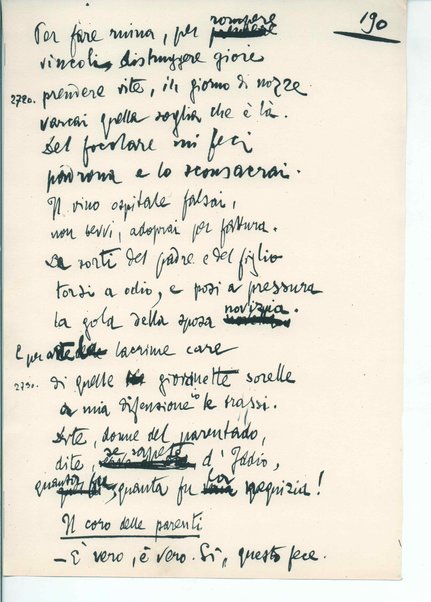 190
Per fare ruina, per rompere
vincoli, distruggere gioie
2720. prendere vite, il giorno di nozze
varcai quella soglia che è là.
Del focolare mi feci
padrona e lo sconsacrai.
Il vino ospitale falsai,
non bevvi, adoprai per fattura.
Le sorti del padre e del figlio
torsi a odio, e posi a pressura
la gola della sposa novizia.
E per arte le lacrime care
2730. di quelle giovinette sorelle
a mia difensione le trassi.
Dite, donne del parentado,
dite, se sapete d'Iddio,
quanta fu, quanta fu la nequizia!
Il coro delle parenti
– È vero, è vero. Sì, questo fece.